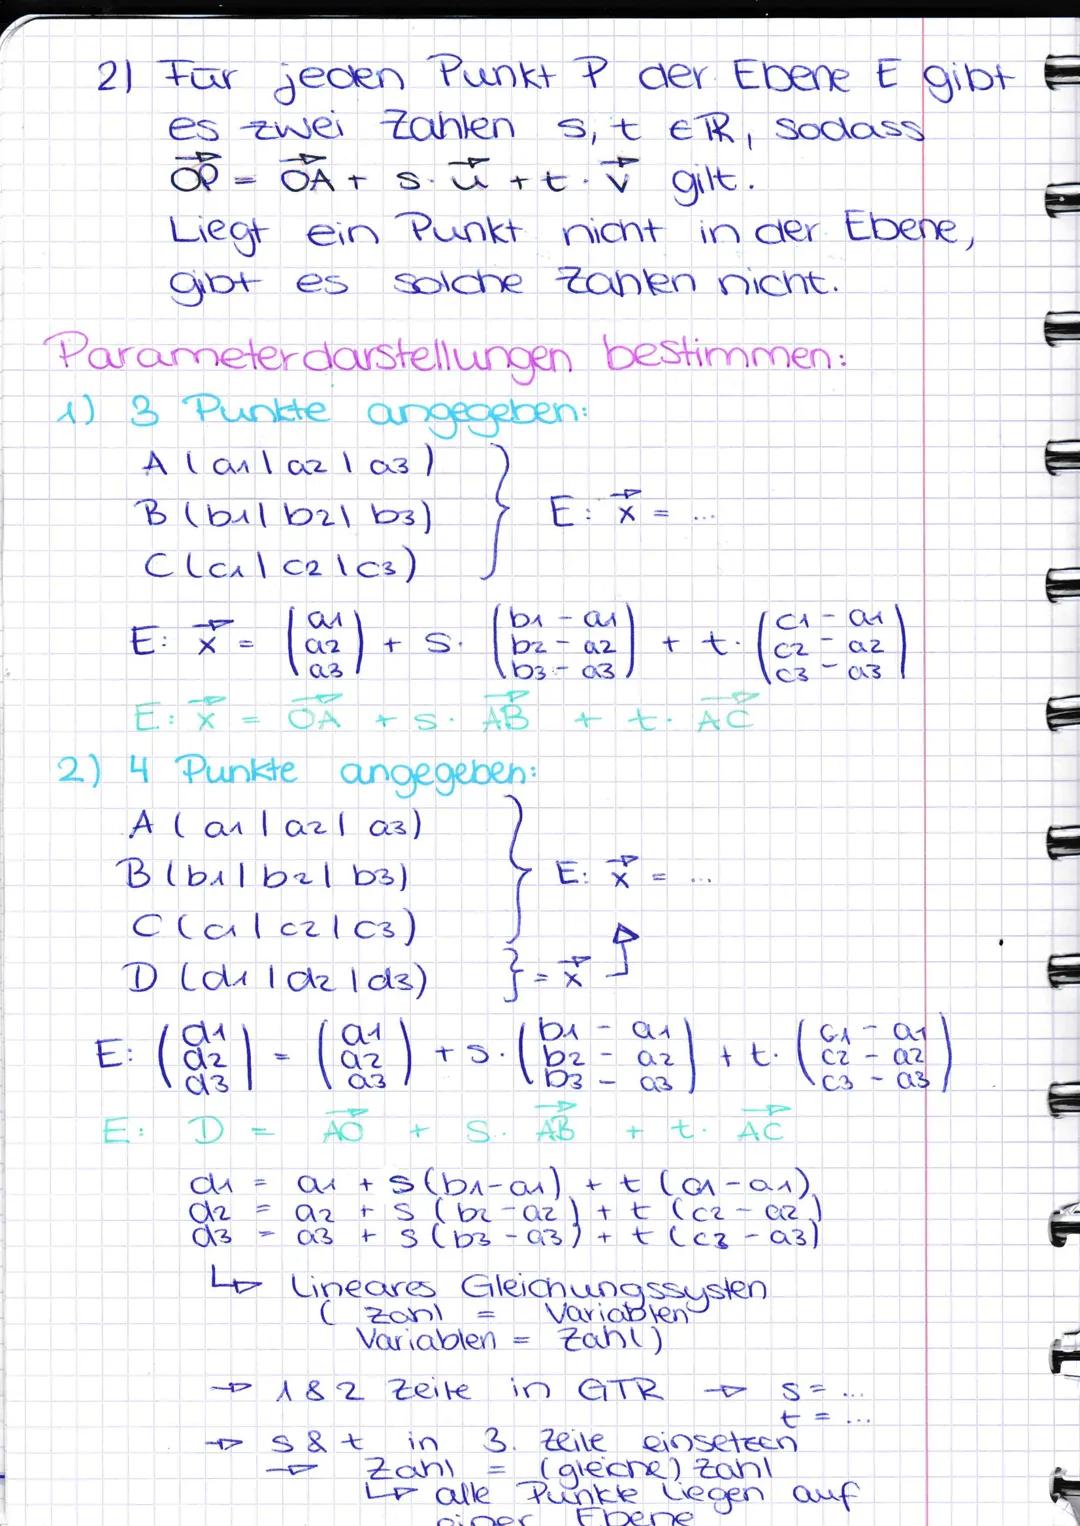 2) Für jeden Punkt P der Ebene E gibt
es zwei Zahlen s, t ∈ ℝ, sodass
OP⃗ = OA⃗ + s · u⃗ + t · v⃗ gilt.
Liegt ein Punkt nicht in der Ebene,
gibt es solche Zahlen nicht.
Parameterdarstellungen bestimmen:
1) 3 Punkte angegeben:
A (a1 | a2 | a3)
B (b1 | b2 | b3) } E: x⃗ = ...
C (c1 | c2 | c3)
E: x⃗ = (a1 a2 a3) + s · (b1 - a1 b2 - a2 b3 - a3) + t · (c1 - a1 c2 - a2 c3 - a3)
E: x⃗ = OA⃗ + s · AB⃗ + t · AC⃗
2) 4 Punkte angegeben:
A (a1 | a2 | a3)
B (b1 | b2 | b3) } E: x⃗ = ...
C (c1 | c2 | c3)
D (d1 | d2 | d3) } = x⃗
E: (d1 d2 d3) = (a1 a2 a3) + s · (b1 - a1 b2 - a2 b3 - a3) + t · (c1 - a1 c2 - a2 c3 - a3)
E: D = AO⃗ + s · AB⃗ + t · AC⃗
d1 = a1 + s (b1 - a1) + t (c1 - a1)
d2 = a2 + s (b2 - a2) + t (c2 - a2)
d3 = a3 + s (b3 - a3) + t (c3 - a3)
↳ Lineares Gleichungssystem
( Zahl = Variablen
Variablen = Zahl)
→ 1 & 2 Zeile in GTR → s = ...
t = ...
→ s & t in 3. Zeile einsetzen
→ Zahl = (gleiche) Zahl
↳ alle Punkte liegen auf
einer Ebene